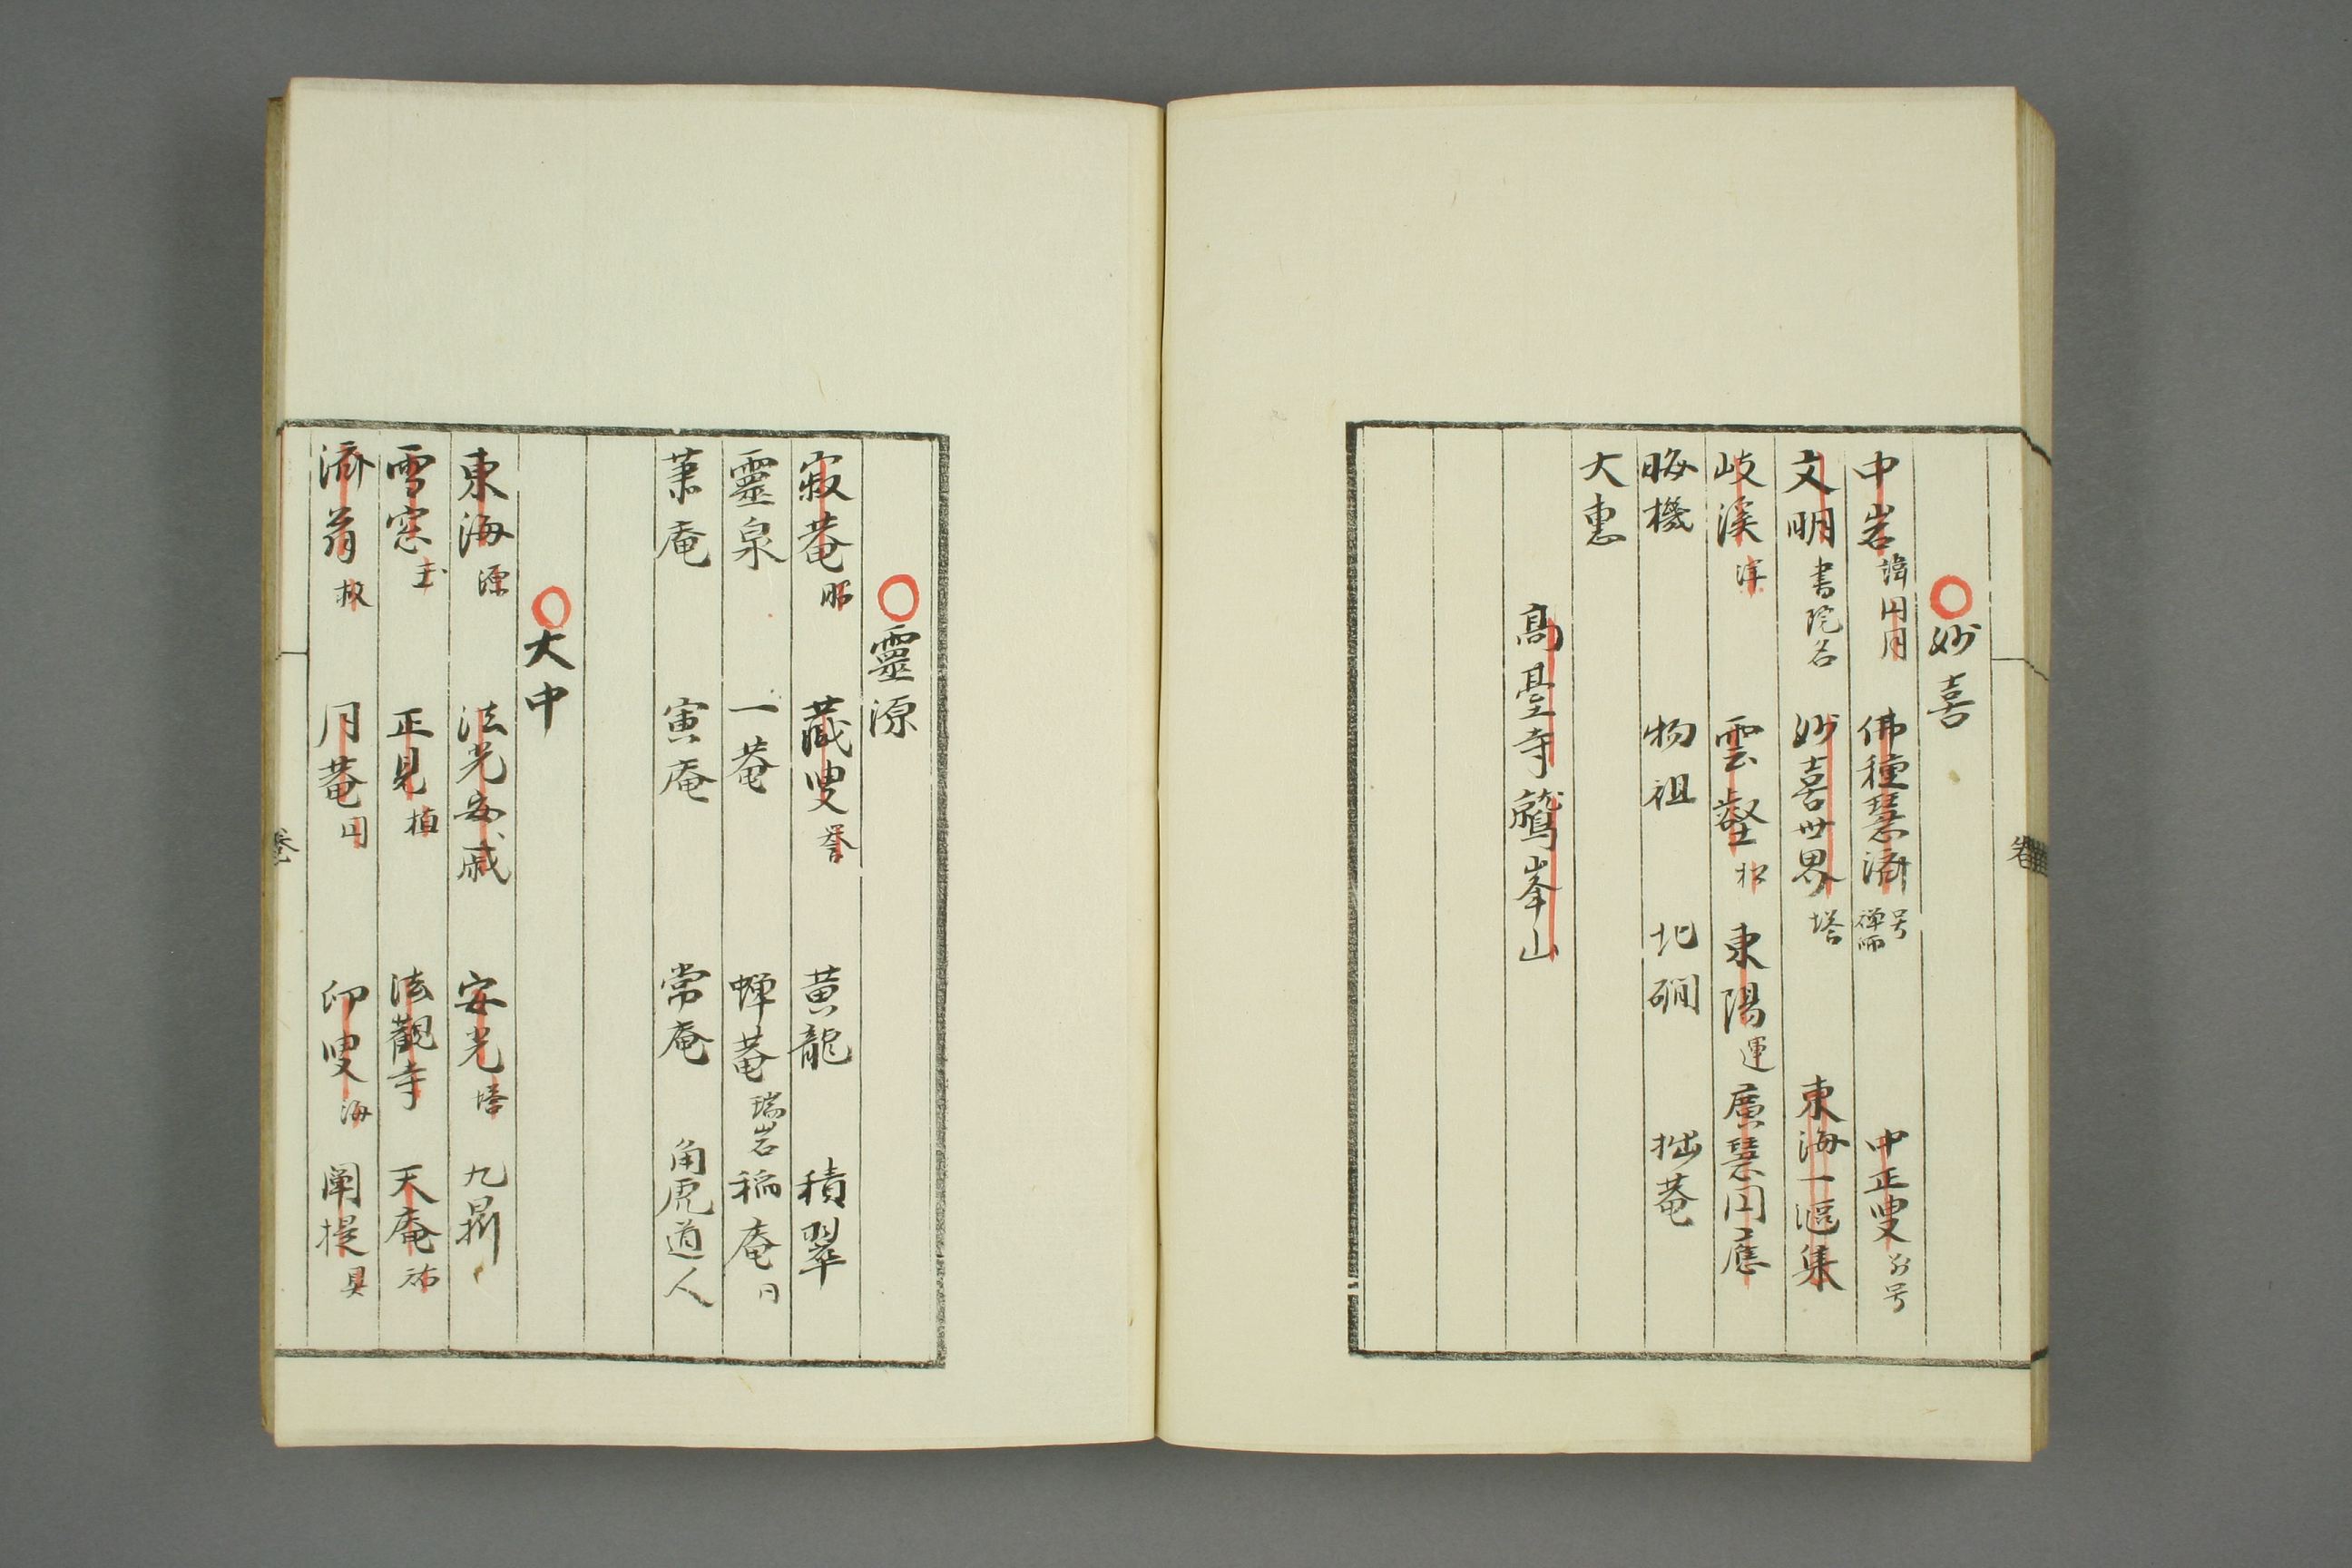 ○妙喜
中岩諱円月 佛種慧済禅師号 中正叟別号
文明書院名 妙喜世界塔 東海一漚集
岐溪 雲壑 東陽運 廣慧円應
晦機 物祖 北磵 拙菴
大惠
高臺寺鷲峯山
○靈源
寂菴昭 蔵叟誉 黄龍 積翠
靈泉 一菴 蟬菴瑞岩 稱庵日
葉庵 寅庵 常庵 角虎道人
○大中
東海源 法光安威 安光塔 九鼎
雪窓 正見植 法觀寺 天庵祐
済翁 月菴円 印叟海 闡提具